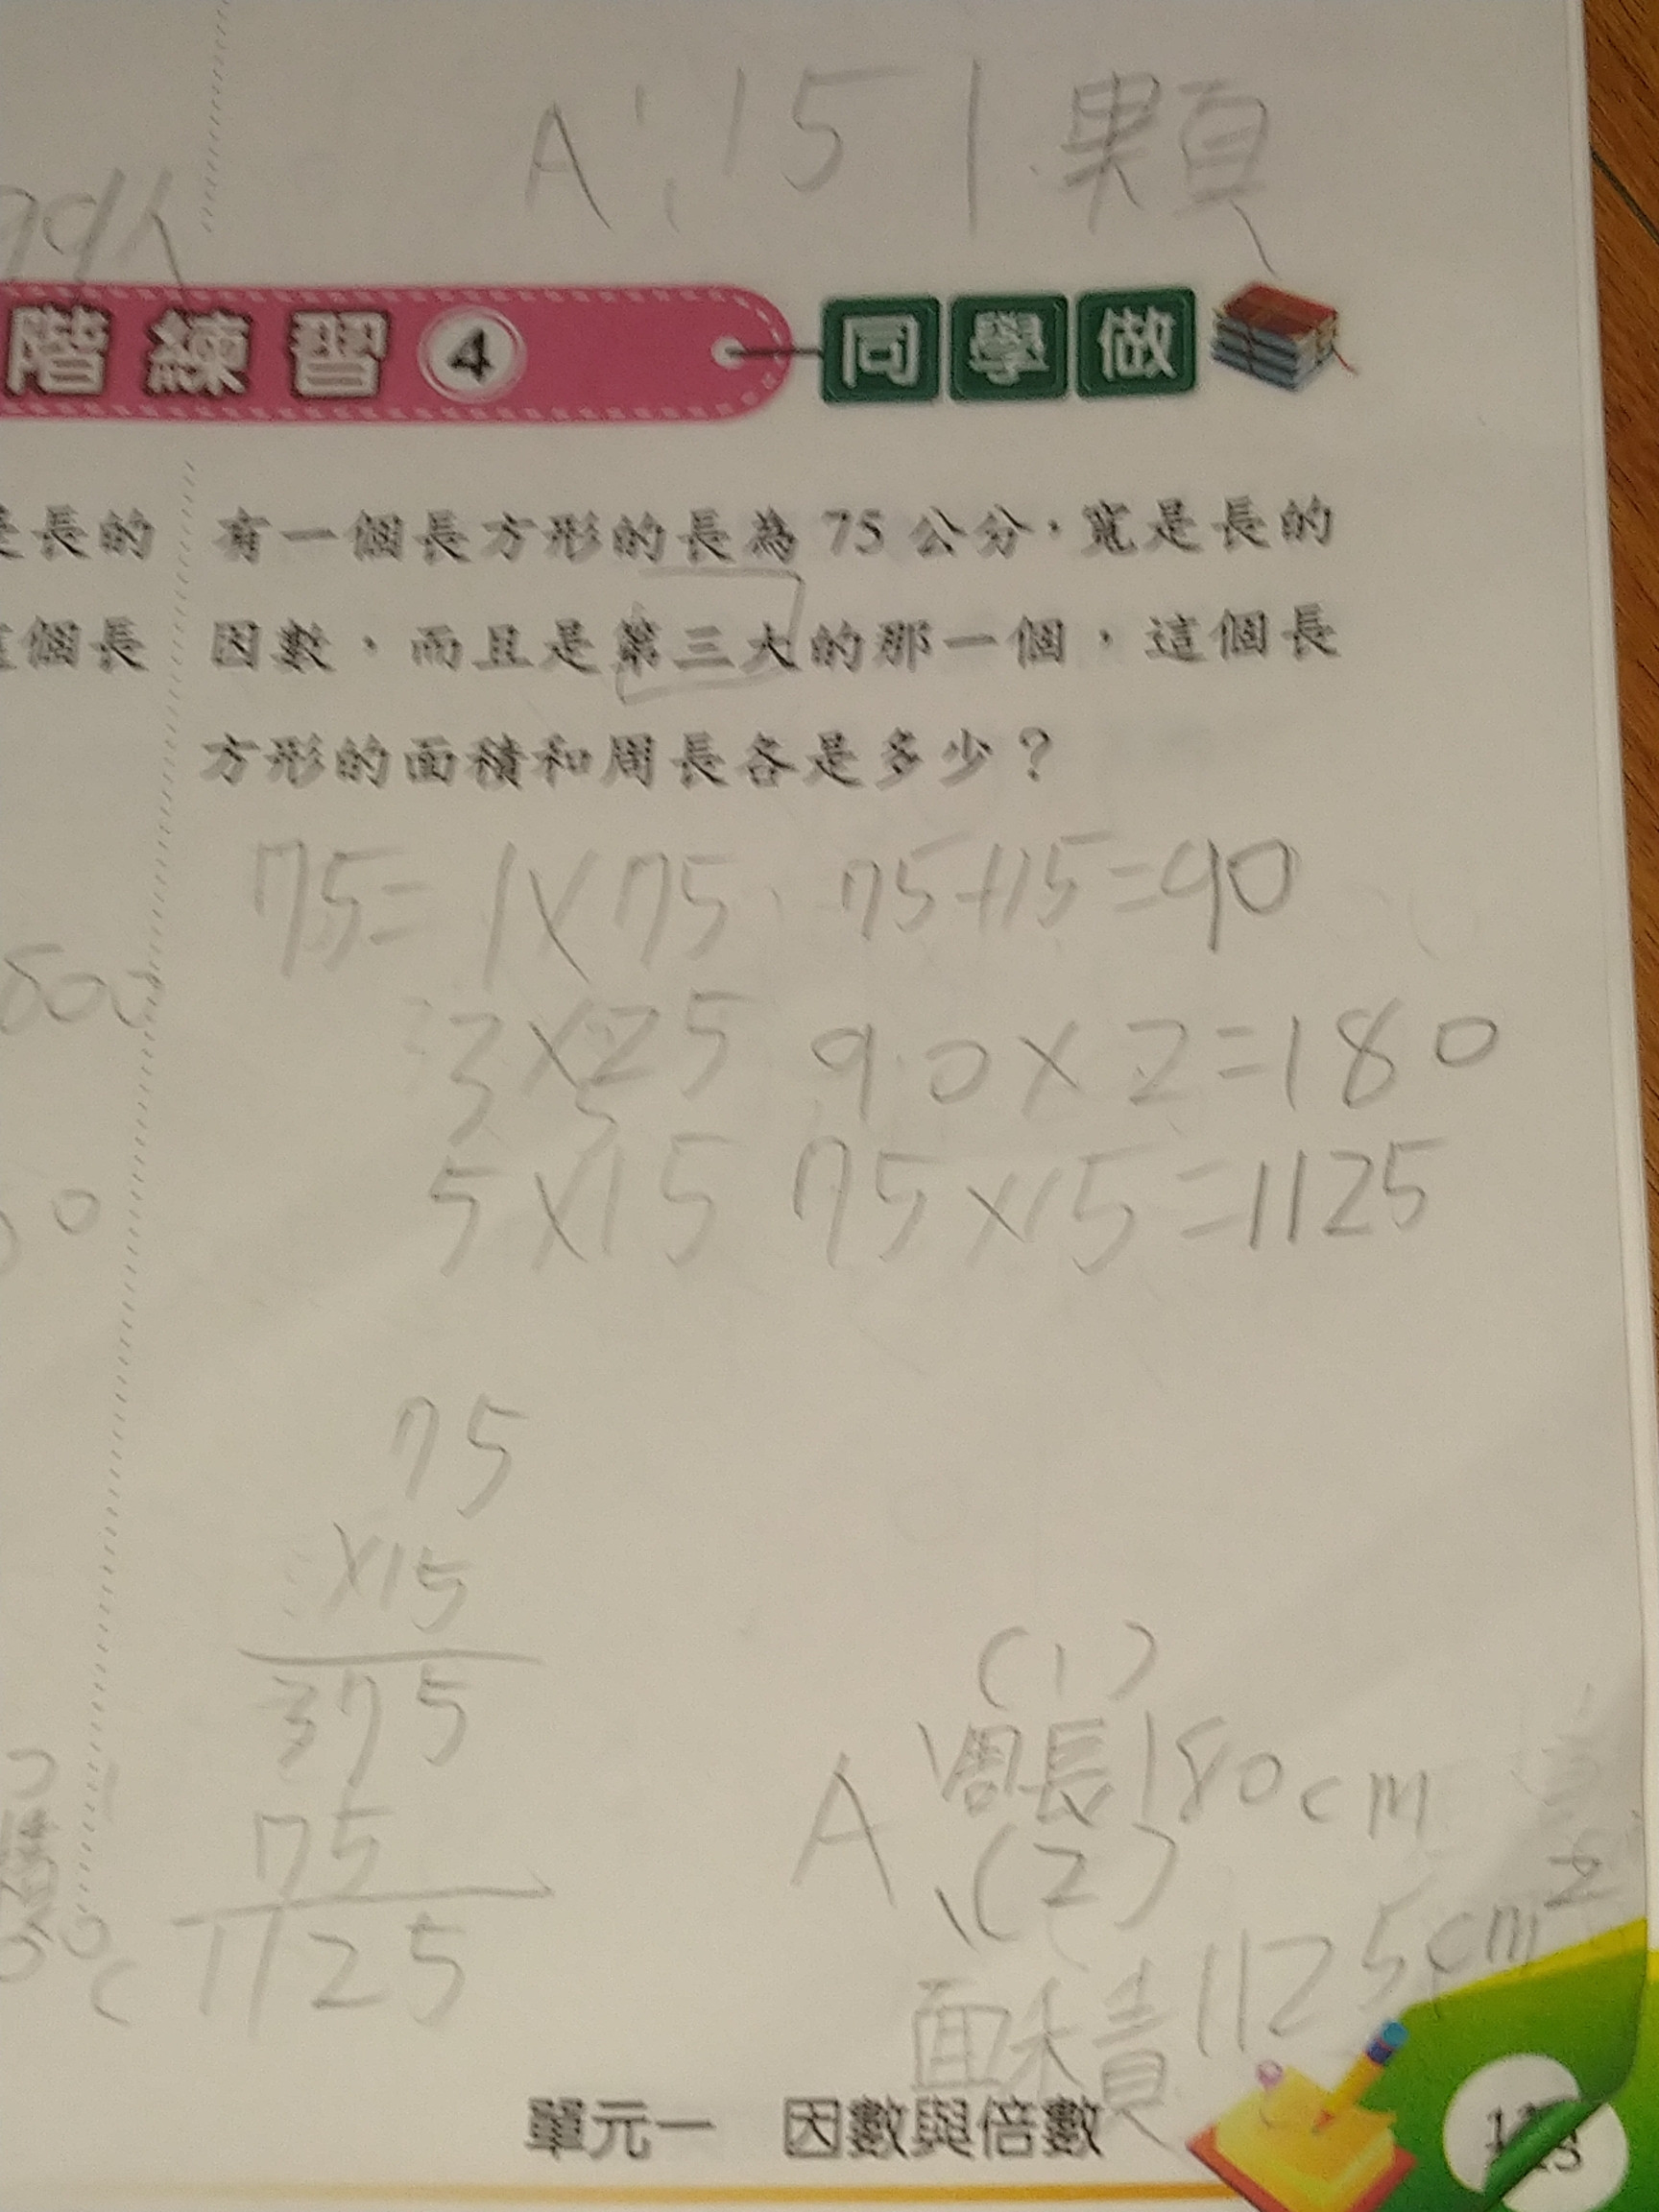 A:151顆
階練習4 同學做
是長的
這個長
有一個長方形的長為 75 公分，寬是長的
因數，而且是第三大的那一個，這個長
方形的面積和周長各是多少？
75=1×75 75+15=90
3×25 90×2=180
5×15 75×15=1125
75
×15
375
75
1125
(1)
A 周長180cm
(2)
面積1125cm²
單元一 因數與倍數